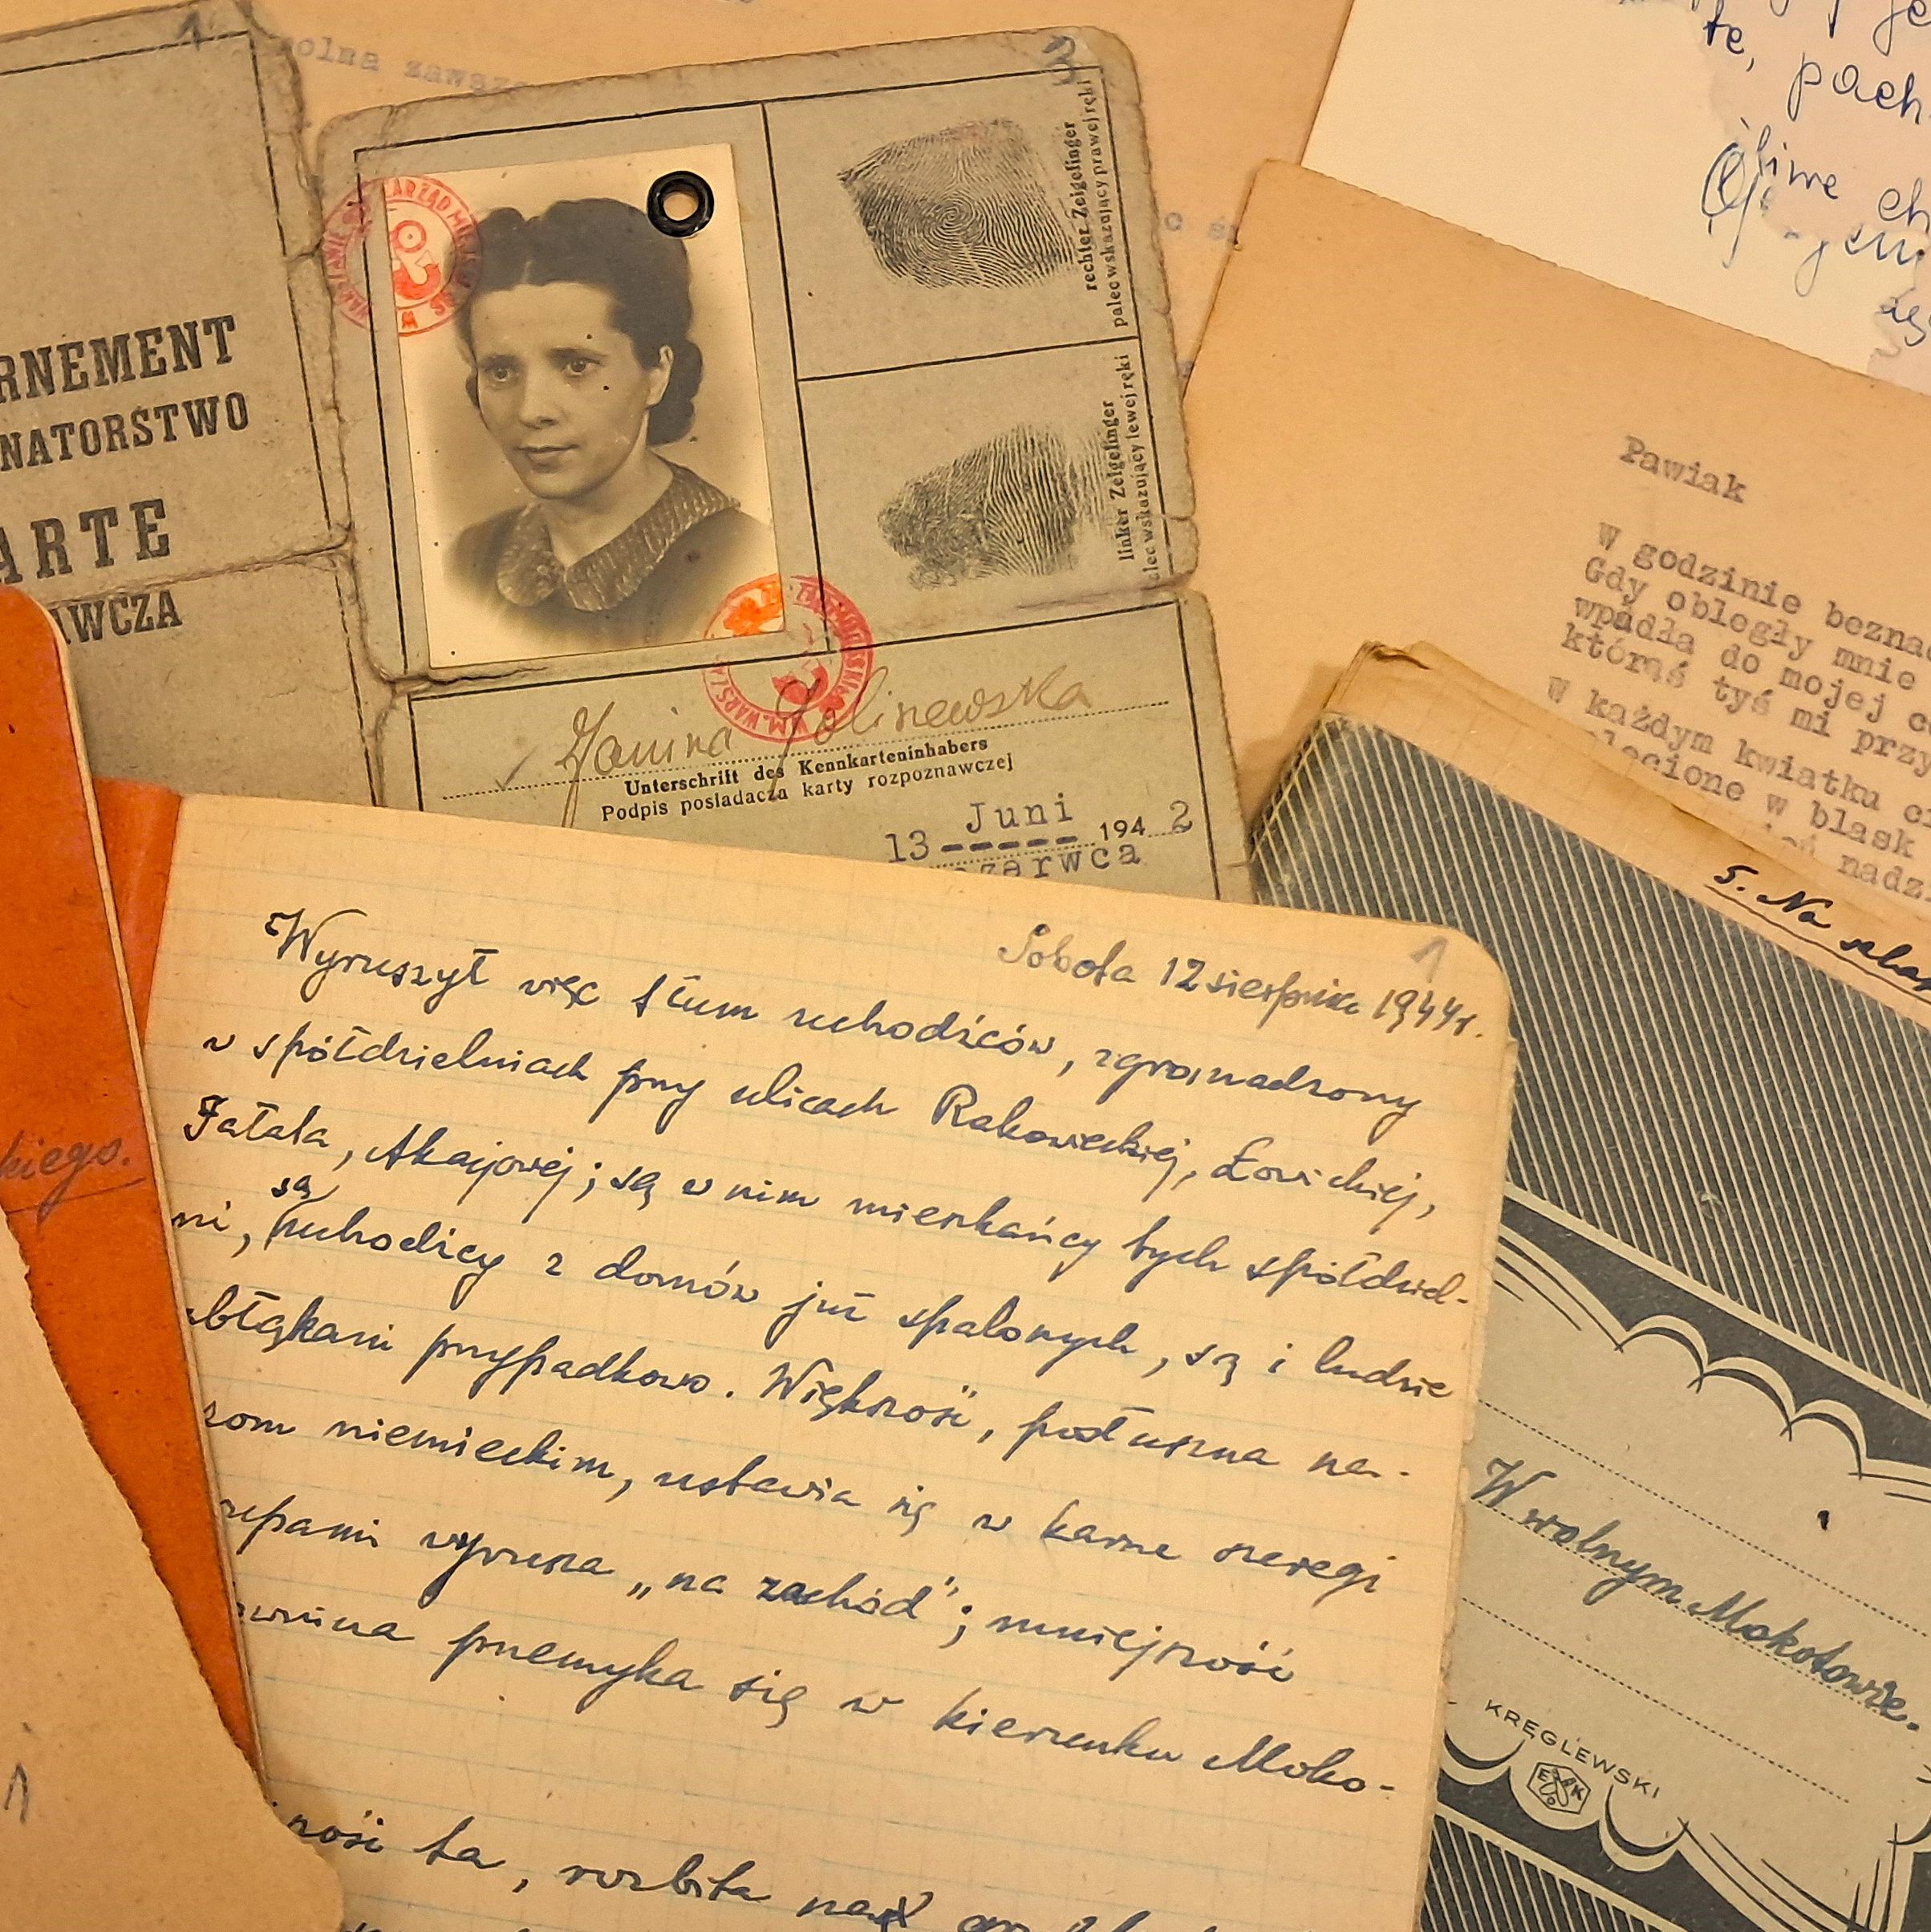 olna zawsz
RNEMENT
NATORSTWO
ARTE
AWCZA
3
rechter Zeigefinger
palec wskazujący prawej ręki
linker Zeigefinger
alec wskazujący lewej ręki
Janina Jolinewska
Unterschrift des Kennkarteninhabers
Podpis posiadacza karty rozpoznawczej
13 Juni 1942
czerwca
te, pach
Pawiak
W godzinie bezna
Gdy obległy mnie
wpadła do mojej c
którąś tyś mi przy
W każdym kwiatku c
plecione w blask
nadz
5. Na
kiego.
1
Sobota 12 sierpnia 1944 r.
Wyruszył więc tłum uchodźców, zgromadzony
w spółdzielniach przy ulicach Rakowieckiej, Łowickiej,
Fałata, Akacjowej; są w nim mieszkańcy tych spółdziel-
ni, są uchodźcy z domów już spalonych, są i ludzie
zabłąkani przypadkowo. Większość, posłuszna na-
zom niemieckim, ustawia się w karne szeregi
rupami wyrusza „na zachód"; mniejszość
przemyka się w kierunku Moko-
ność ta, rozbita
W wolnym Mokotowie.
KRĘGLEWSKI
1